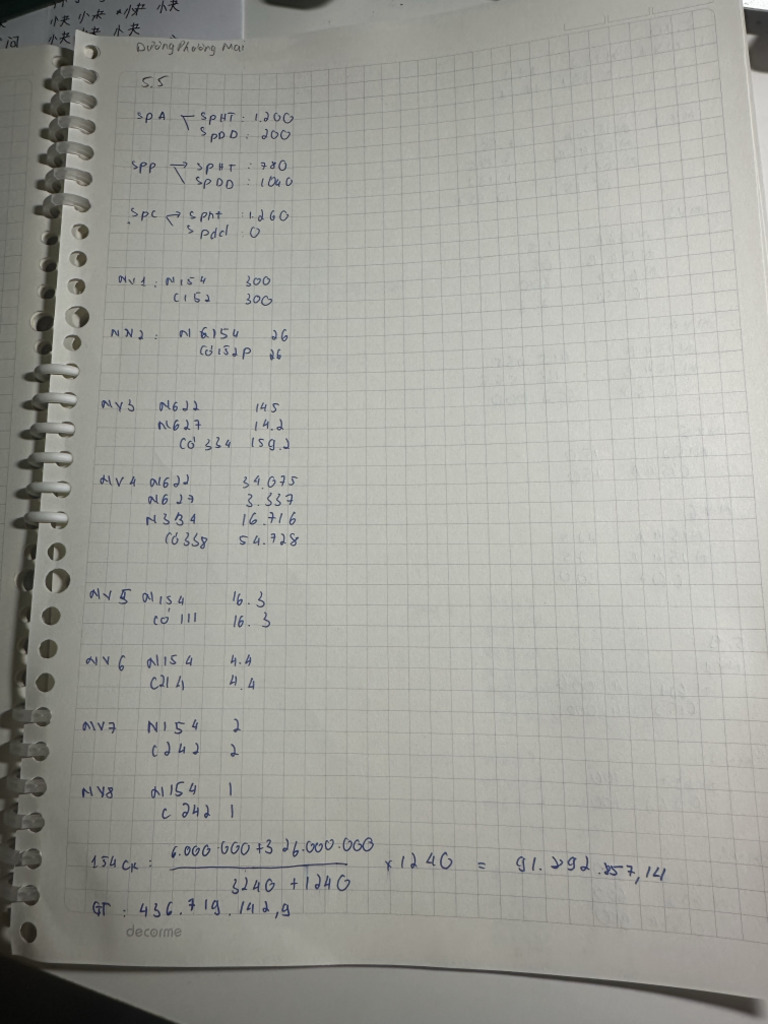 快 小夬 小快 快
问 快 夬 夬
Dương Phương Mai
5.5
SpA SpHT : 1.200
SpDD : 200
Spp → SpHT : 780
SpDD : 1040
Spc → Spht : 1.260
Spdd 0
NV1 : N154 300
C152 300
NV2 : N 6154 26
Có 152P 26
NV3 N622 145
N627 14.2
Có 334 159.2
NV4 N622 34.075
N627 3.337
N334 16.716
Có338 54.728
NV5 N154 16.3
Có 111 16.3
NV6 N154 4.4
C214 4.4
NV7 N154 2
C242 2
NV8 N154 1
C 242 1
154CK : 6.000.000+326.000.000
3240 + 1240 × 1240 = 91.892.857,14
GT : 436.719.142,9
decorme